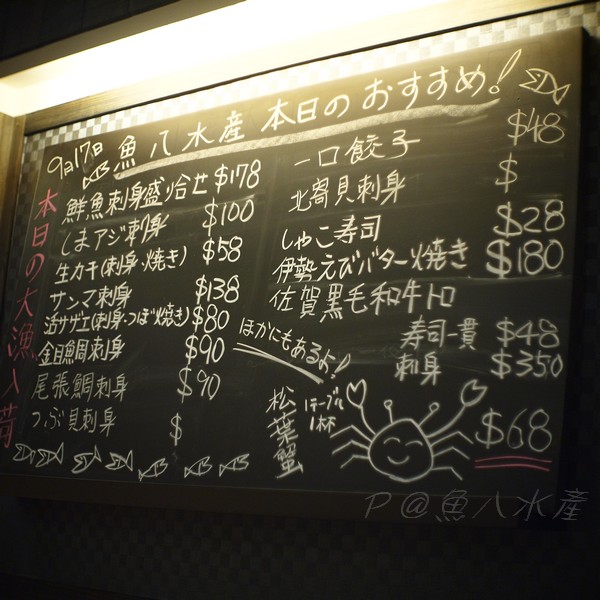 9月17日 魚八水産 本日のおすすめ!
本日の大漁入荷
鮮魚刺身盛り合せ $178
しまアジ刺身 $100
生カキ(刺身・焼き) $58
サンマ刺身 $138
活サザエ(刺身・つぼ焼き) $80
金目鯛刺身 $90
尾張鯛刺身 $90
つぶ貝刺身 $
一口餃子 $48
北寄貝刺身 $
しゃこ寿司 $28
伊勢えびバター焼き $180
佐賀黒毛和牛トロ
寿司一貫 $48
刺身 $350
ほかにもあるよ!
松葉蟹 1テーブル1杯 $68
P@魚八水産